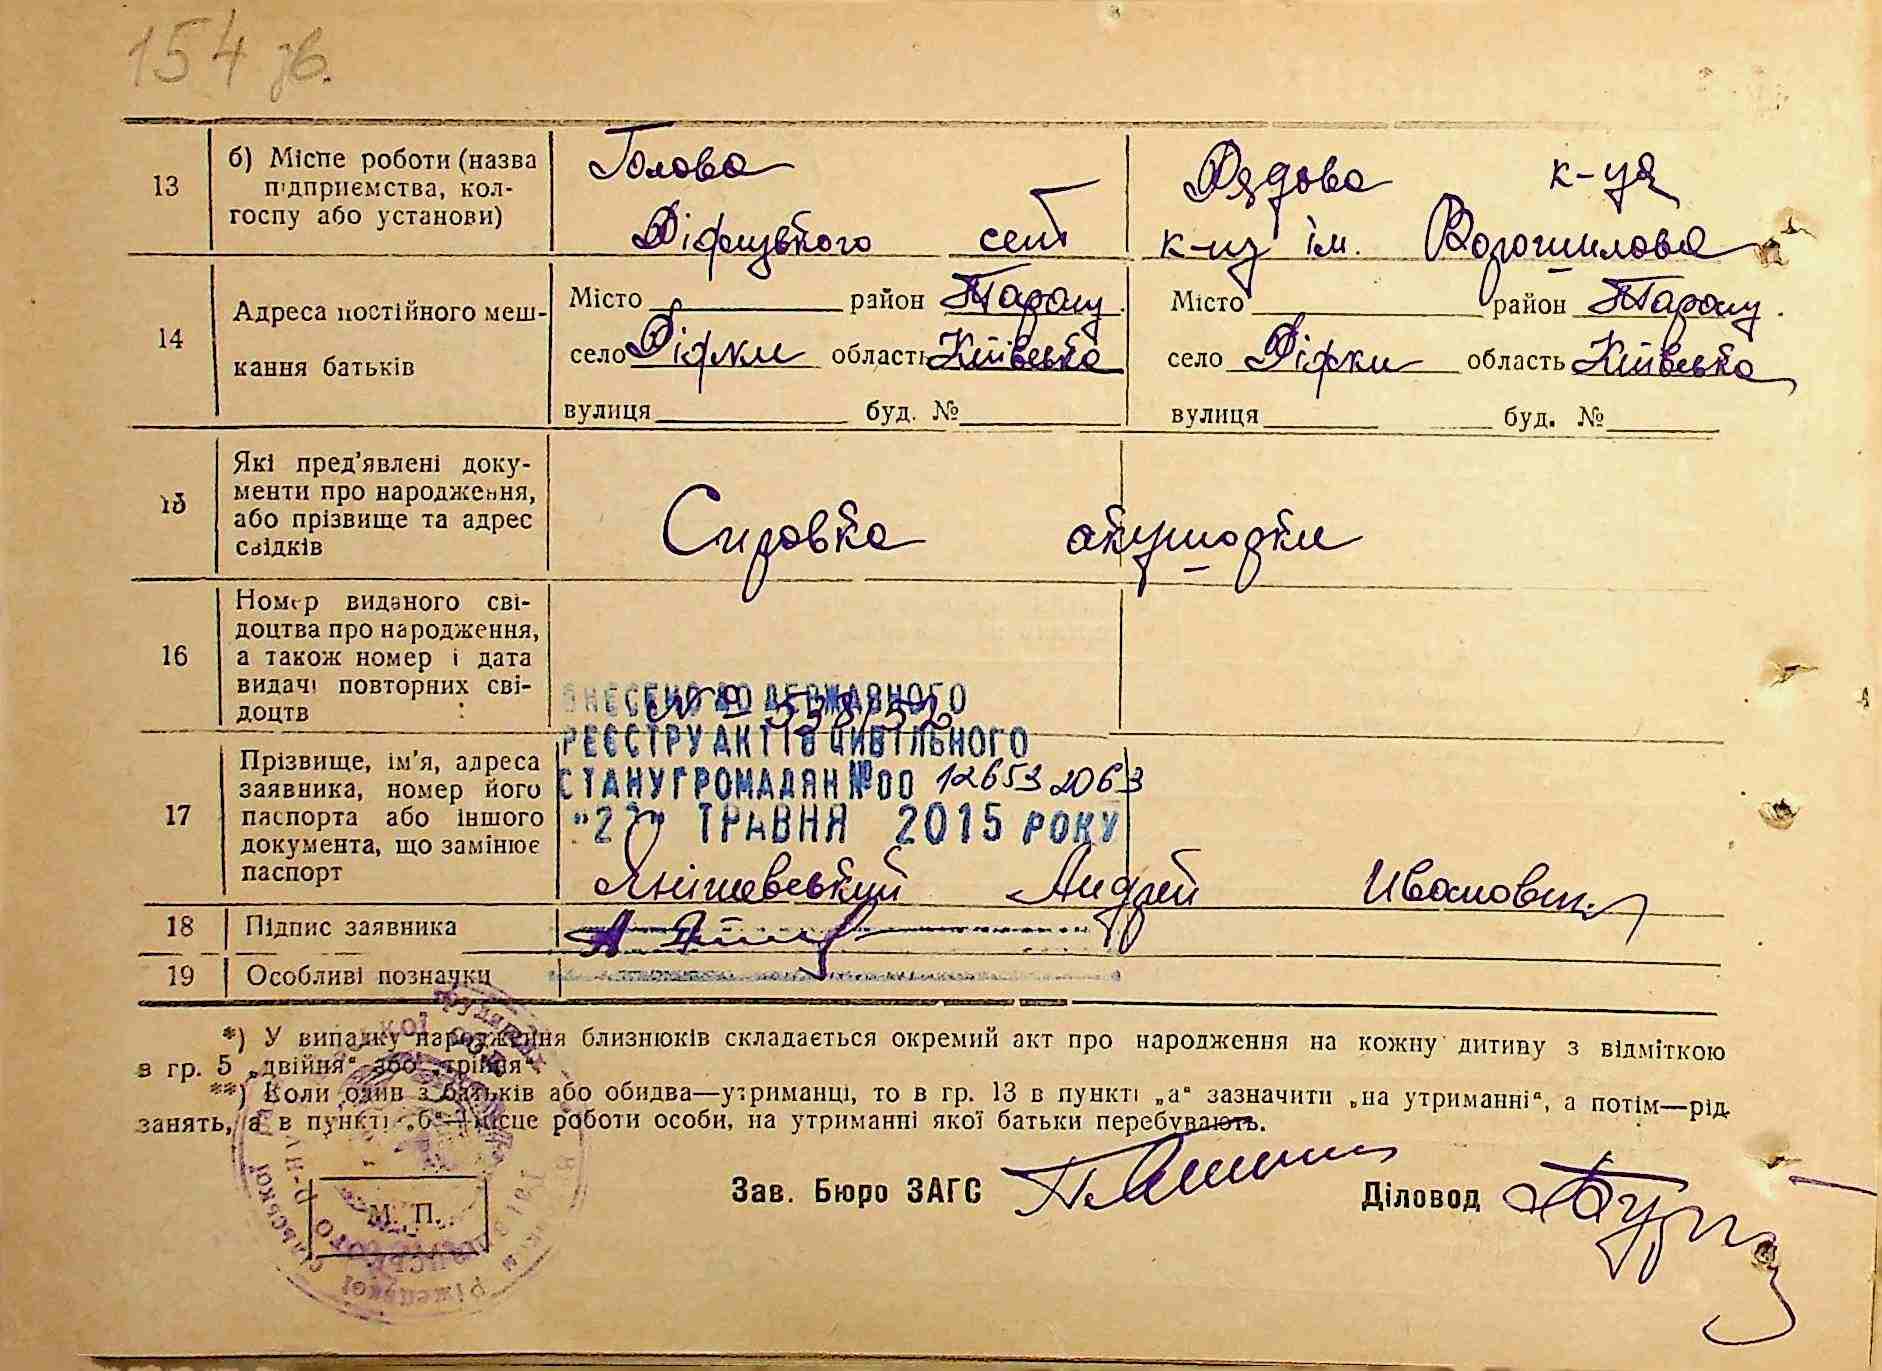 154 зв.
13
б) Місце роботи (назва
підприємства, кол-
госпу або установи)
Голова
сент
Рядова к-ця
к-пу ім. Ворошилова
14
Адреса постійного меш-
кання батьків
Місто район Таращ.
село область Київська
вулиця буд. №
Місто район Таращ.
село область Київська
вулиця буд. №
15
Які пред'явлені доку-
менти про народження,
або прізвище та адрес
свідків
Справка акушорки
16
Номер виданого сві-
доцтва про народження,
а також номер і дата
видачі повторних сві-
доцтв :
№ 538/52
ВНЕСЕНО ДО ДЕРЖАВНОГО
РЕЄСТРУ АКТІВ ЦИВІЛЬНОГО
СТАНУ ГРОМАДЯН №00 126532063
ТРАВНЯ 2015 РОКУ
17
Прізвище, ім'я, адреса
заявника, номер його
паспорта або іншого
документа, що замінює
паспорт
Янішевський Андрей Иванович
18 Підпис заявника
19 Особливі позначки
*) У випадку народження близнюків складається окремий акт про народження на кожну дитину з відміткою
в гр. 5 „двійня“ або „трійня“
**) Коли один з батьків або обидва—утриманці, то в гр. 13 в пункті „а“ зазначити „на утриманні“, а потім—рід
занять, а в пункті „б“—місце роботи особи, на утриманні якої батьки перебувають.
М. П.
Зав. Бюро ЗАГС
Діловод